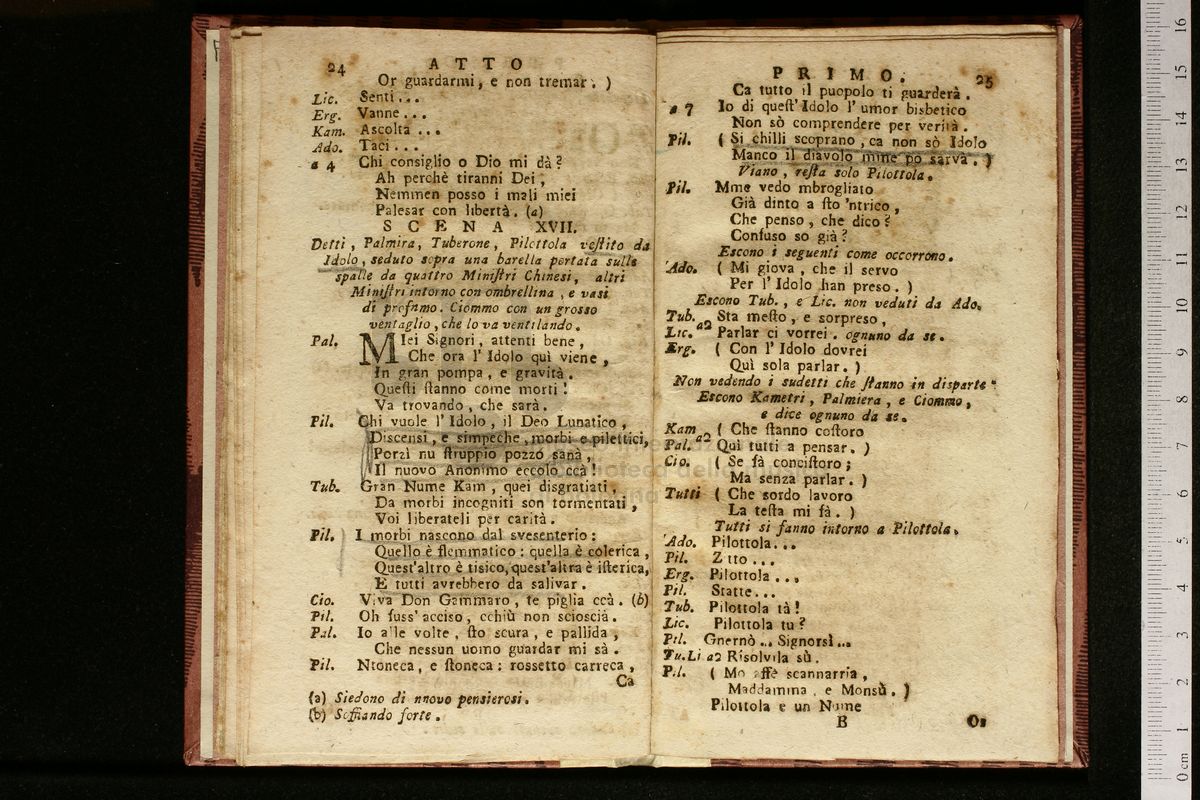 24 ATTO
Or guardarmi, e non tremar. )
Lic. Senti...
Erg. Vanne...
Kam. Ascolta...
Ado. Taci...
a 4 Chi consiglio o Dio mi dà?
Ah perchè tiranni Dei,
Nemmen posso i mali miei
Palesar con libertà. (a)
SCENA XVII.
Detti, Palmira, Tuberone, Pilottola veſtito da
Idolo, seduto sopra una barella portata sulle
spalle da quattro Miniſtri Chinesi, altri
Miniſtri intorno con ombrellina, e vasi
di profumo. Ciommo con un grosso
ventaglio, che lo va ventilando.
Pal. MIei Signori, attenti bene,
Che ora l' Idolo quì viene,
In gran pompa, e gravità.
Queſti ſtanno come morti!
Va trovando, che sarà.
Pil. Chi vuole l' Idolo, il Deo Lunatico,
Discensi, e simpeche, morbi e pilettici,
Porzì nu ſtruppio pozzo sanà,
Il nuovo Anonimo eccolo ccà!
Tub. Gran Nume Kam, quei disgratiati,
Da morbi incogniti son tormentati,
Voi liberateli per carità.
Pil. I morbi nascono dal svesenterio:
Quello è flemmatico: quella è colerica,
Quest'altro è tisico, quest'altra è iſterica,
E tutti avrebbero da salivar.
Cio. Viva Don Gammaro, te piglia ccà. (b)
Pil. Oh fuss' acciso, cchiù non scioscià.
Pal. Io alle volte, ſto scura, e pallida,
Che nessun uomo guardar mi sà.
Pil. Ntoneca, e ſtoneca: rossetto carreca,
Ca
(a) Siedono di nnovo pensierosi.
(b) Soffiando forte.
PRIMO. 25
Ca tutto il puopolo ti guarderà.
a 7 Io di queſt' Idolo l' umor bisbetico
Non sò comprendere per verità.
Pil. ( Si chilli scoprano, ca non sò Idolo
Manco il diavolo mme pò sarvà. )
Viano, reſta solo Pilottola.
Pil. Mme vedo mbrogliato
Già dinto a ſto 'ntrico,
Che penso, che dico?
Confuso so già?
Escono i seguenti come occorrono.
Ado. ( Mi giova, che il servo
Per l' Idolo han preso. )
Escono Tub., e Lic. non veduti da Ado.
Tub. Sta meſto, e sorpreso,
Lic. a2 Parlar ci vorrei. ognuno da se.
Erg. ( Con l' Idolo dovrei
Quì sola parlar. )
Non vedendo i sudetti che ſtanno in disparte
Escono Kametri, Palmiera, e Ciommo,
e dice ognuno da se.
Kam ( Che ſtanno coſtoro
Pal. a2 Quì tutti a pensar. )
Cio. ( Se fà conciſtoro;
Ma senza parlar. )
Tutti ( Che sordo lavoro
La teſta mi fà. )
Tutti si fanno intorno a Pilottola.
Ado. Pilottola...
Pil. Zitto...
Erg. Pilottola...
Pil. Statte...
Tub. Pilottola tà!
Lic. Pilottola tu?
Pil. Gnernò... Signorsì...
Tu.Li a2 Risolvila sù.
Pil. ( Mo affè scannarria,
Maddamma, e Monsù. )
Pilottola e un Nume
B